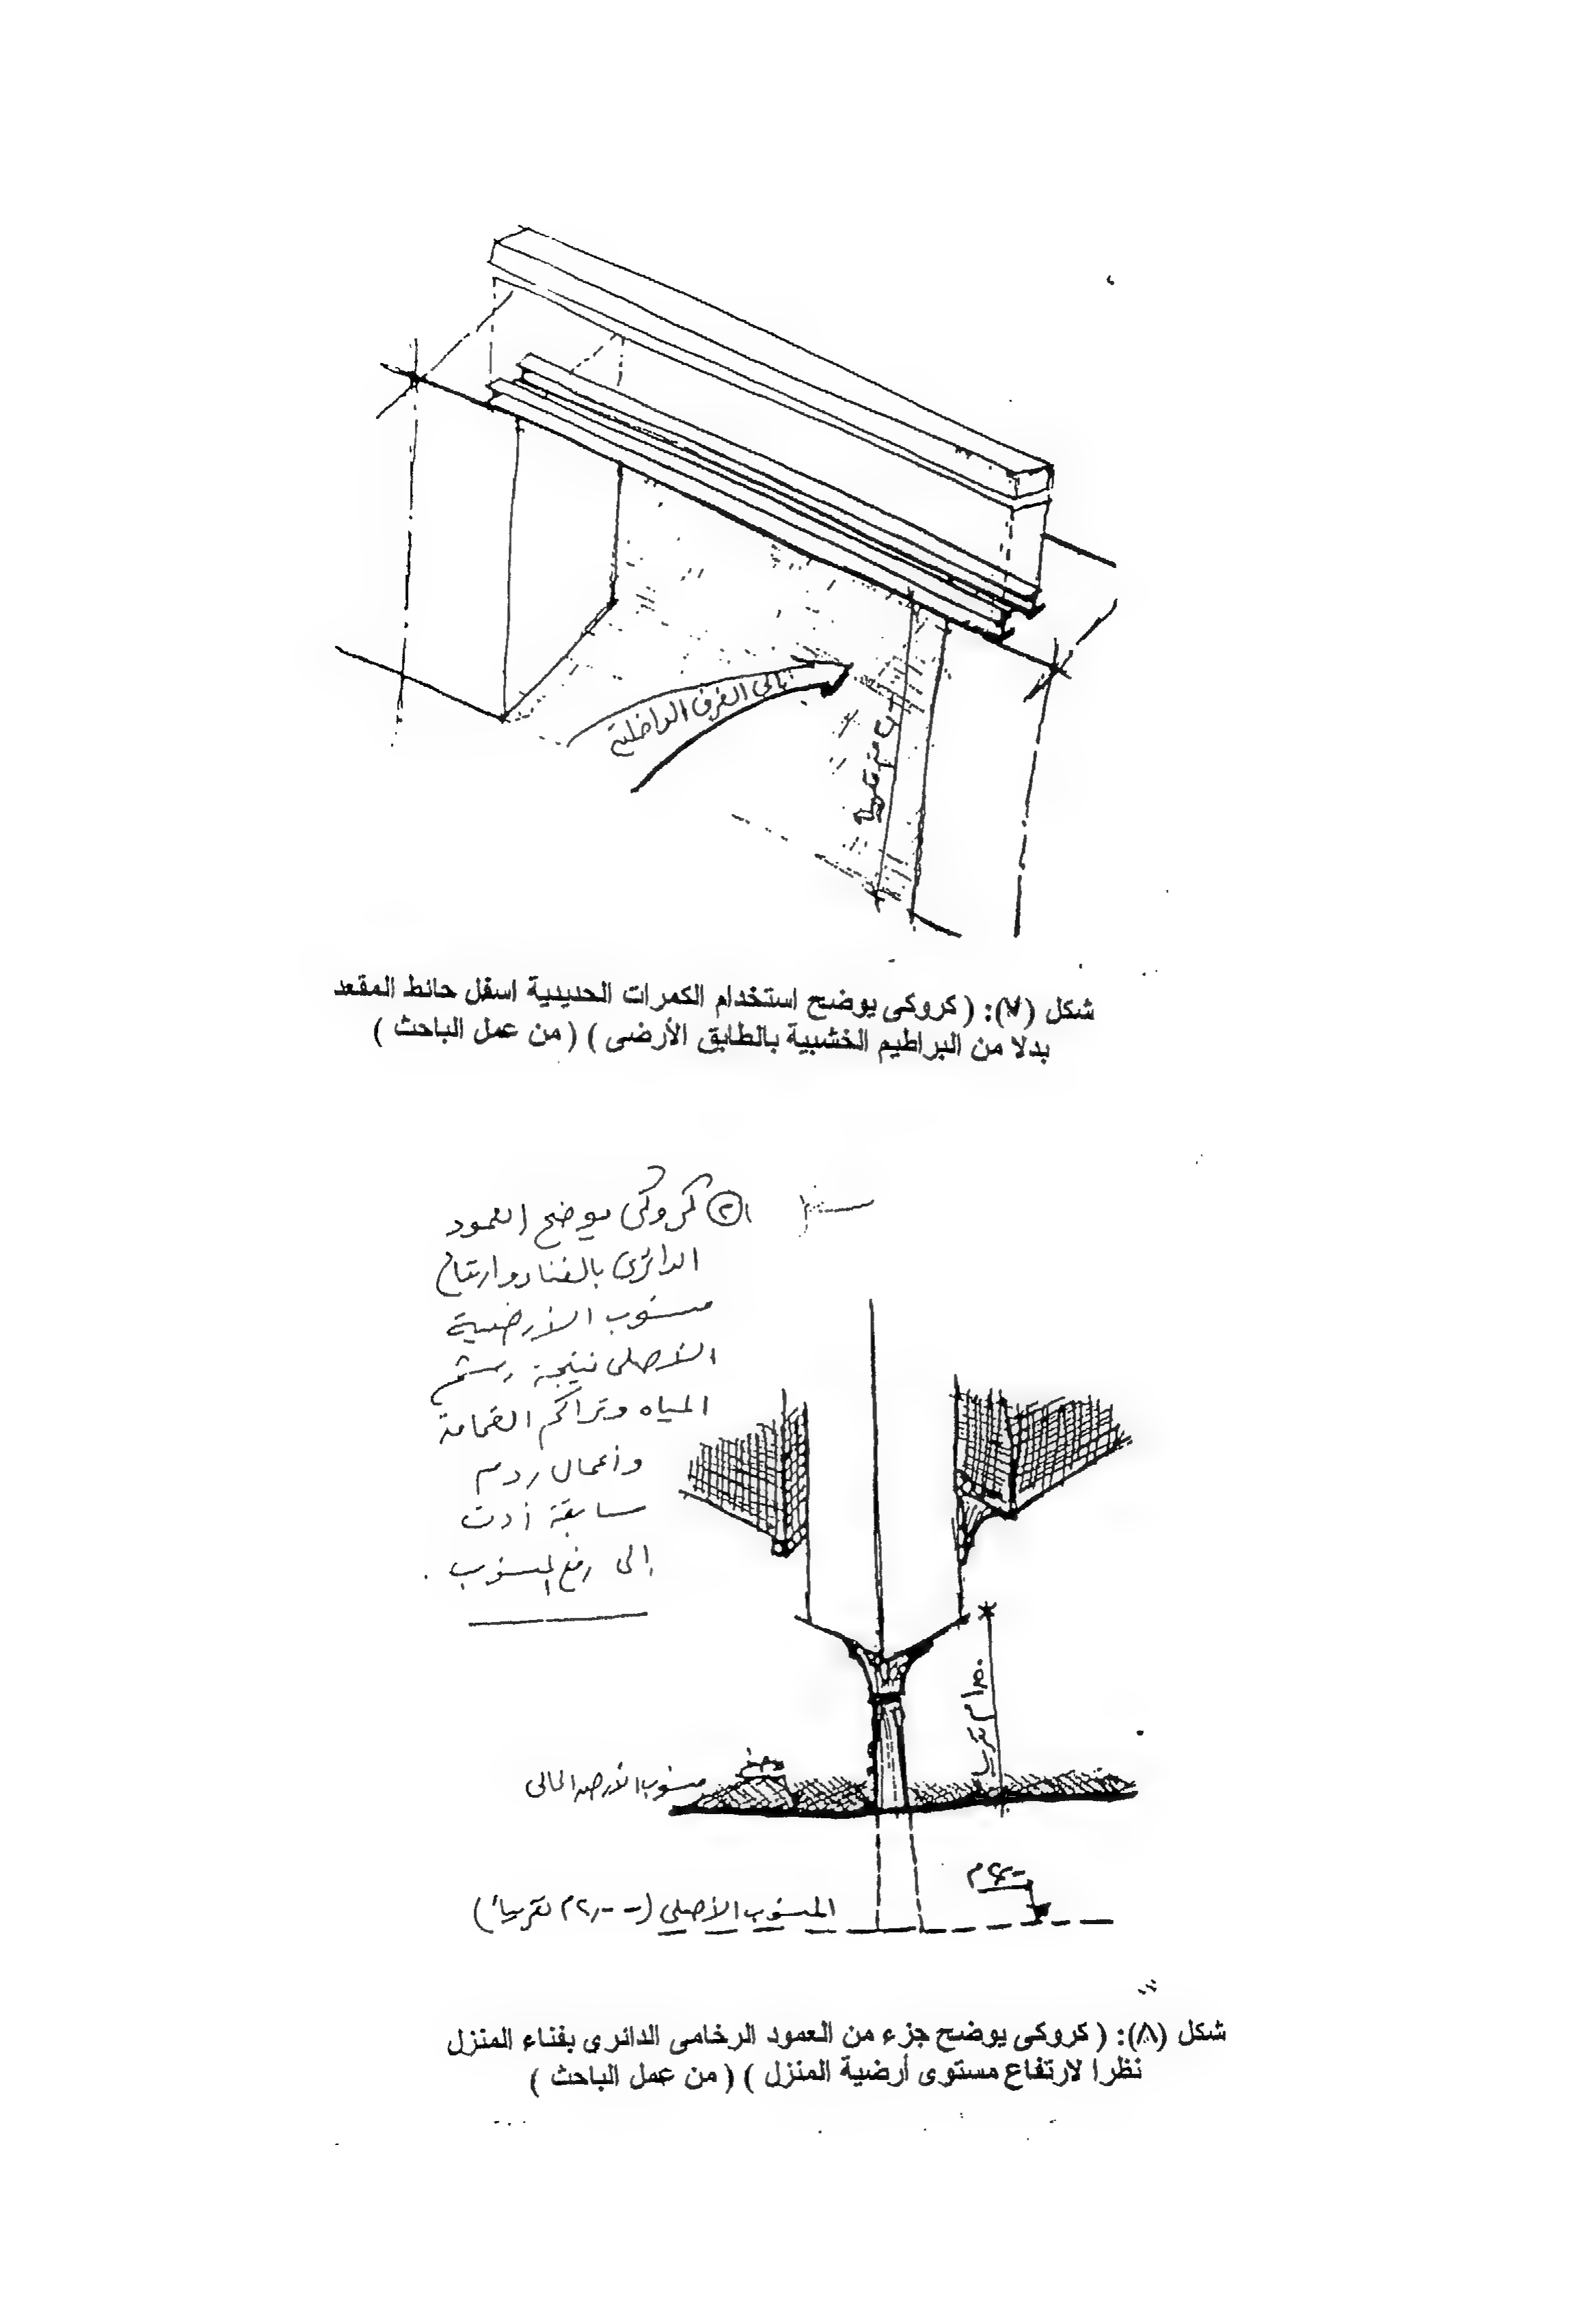 إلى الغرف الداخلية
شكل (٧): ( كروكى يوضح استخدام الكمرات الحديدية اسفل حائط المقعد
بدلا من البراطيم الخشبية بالطابق الأرضى ) ( من عمل الباحث )
٢ كروكى يوضح العمود
الدائرى بالفناء وارتفاع
منسوب الأرضية
الأصلى نتيجة رشح
المياه وتراكم القمامة
وأعمال ردم
سابقة أدت
إلى رفع المنسوب .
م تقريبا
منسوب الأرضية الحالى
المنسوب الأصلى (-٢٫٠٠م تقريبا)
شكل (٨): ( كروكى يوضح جزء من العمود الرخامى الدائرى بفناء المنزل
نظرا لارتفاع مستوى أرضية المنزل ) ( من عمل الباحث )